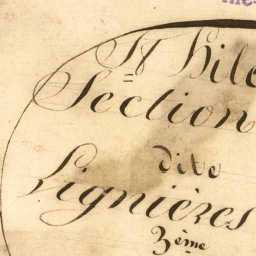 St Hil
Section
dite
Lignières
3ème